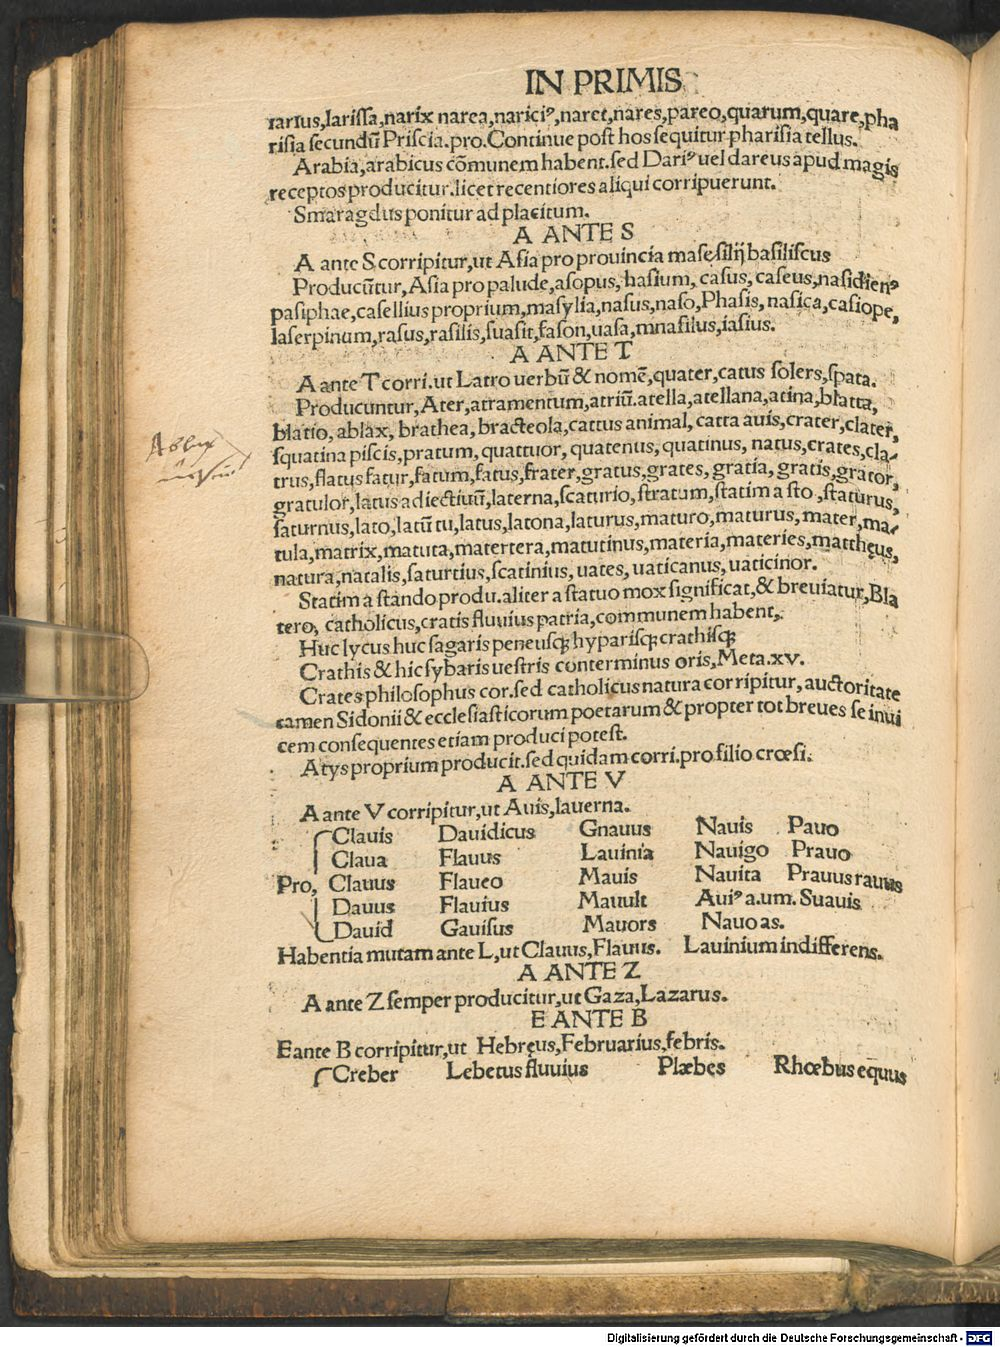 IN PRIMIS
rarius,larissa,narix narea,nariciꝰ,naret,nares,pareo,quarum,quare,pha
risia secundũ Priscia.pro.Continue post hos sequitur pharisia tellus.
Arabia,arabicus cõmunem habent.sed Dariꝰ uel dareus apud magis
receptos producitur.licet recentiores aliqui corripuerunt.
Smaragdus ponitur ad placitum.
A ANTE S
A ante S corripitur,ut Asia pro prouincia masesilij basiliscus
Producũtur,Asia pro palude,asopus,hasium,casus,caseus,nasidienꝰ
pasiphae,casellius proprium,masylia,nasus,naso,Phasis,nasica,casiope,
laserpinum,rasus,rasilis,suasit,fason,uasa,mnasilus,iasius.
A ANTE T
A ante T corri.ut Latro uerbũ & nomẽ,quater,catus solers,spata.
Producuntur,Ater,atramentum,atriũ.atella,atellana,atina,blatta,
blatio,ablax,brathea,bracteola,cattus animal,catta auis,crater,clater,
squatina piscis,pratum,quattuor,quatenus,quatinus,natus,crates,cla-
trus,flatus fatur,fatum,fatus,frater,gratus,grates,gratia,gratis,grator,
gratulor,latus adiectiuũ,laterna,scaturio,stratum,statim a sto,staturus,
saturnus,lato,latũ tu,latus,latona,laturus,maturo,maturus,mater,ma-
tula,matrix,matuta,matertera,matutinus,materia,materies,matthęus,
natura,natalis,saturtius,scatinius,uates,uaticanus,uaticinor.
Statim a stando produ.aliter a statuo mox significat,& breuiatur,Bla
tero,catholicus,cratis fluuius patria,communem habent,.
Huc lycus huc sagaris peneusq; hyparisq; crathisq;
Crathis & hic sybaris uestris conterminus oris,Meta.xv.
Crates philosophus cor.sed catholicus natura corripitur,auctoritate
tamen Sidonii & ecclesiasticorum poetarum & propter tot breues se inui
cem consequentes etiam produci potest.
Atys proprium producit.sed quidam corri.pro filio crœsi.
A ANTE V
A ante V corripitur,ut Auis,lauerna.
Clauis Dauidicus Gnauus Nauis Pauo
Claua Flauus Lauinia Nauigo Prauo
Pro, Clauus Flaueo Mauis Nauita Prauus rauus
Dauus Flauius Mauult Auiꝰ a.um. Suauis
Dauid Gauisus Mauors Nauo as.
Habentia mutam ante L,ut Clauus,Flauus. Lauinium indifferens.
A ANTE Z
A ante Z semper producitur,ut Gaza,Lazarus.
E ANTE B
E ante B corripitur,ut Hebręus,Februarius,febris.
Creber Lebetus fluuius Plæbes Rhœbus equus
Ablax
Digitalisierung gefördert durch die Deutsche Forschungsgemeinschaft - DFG